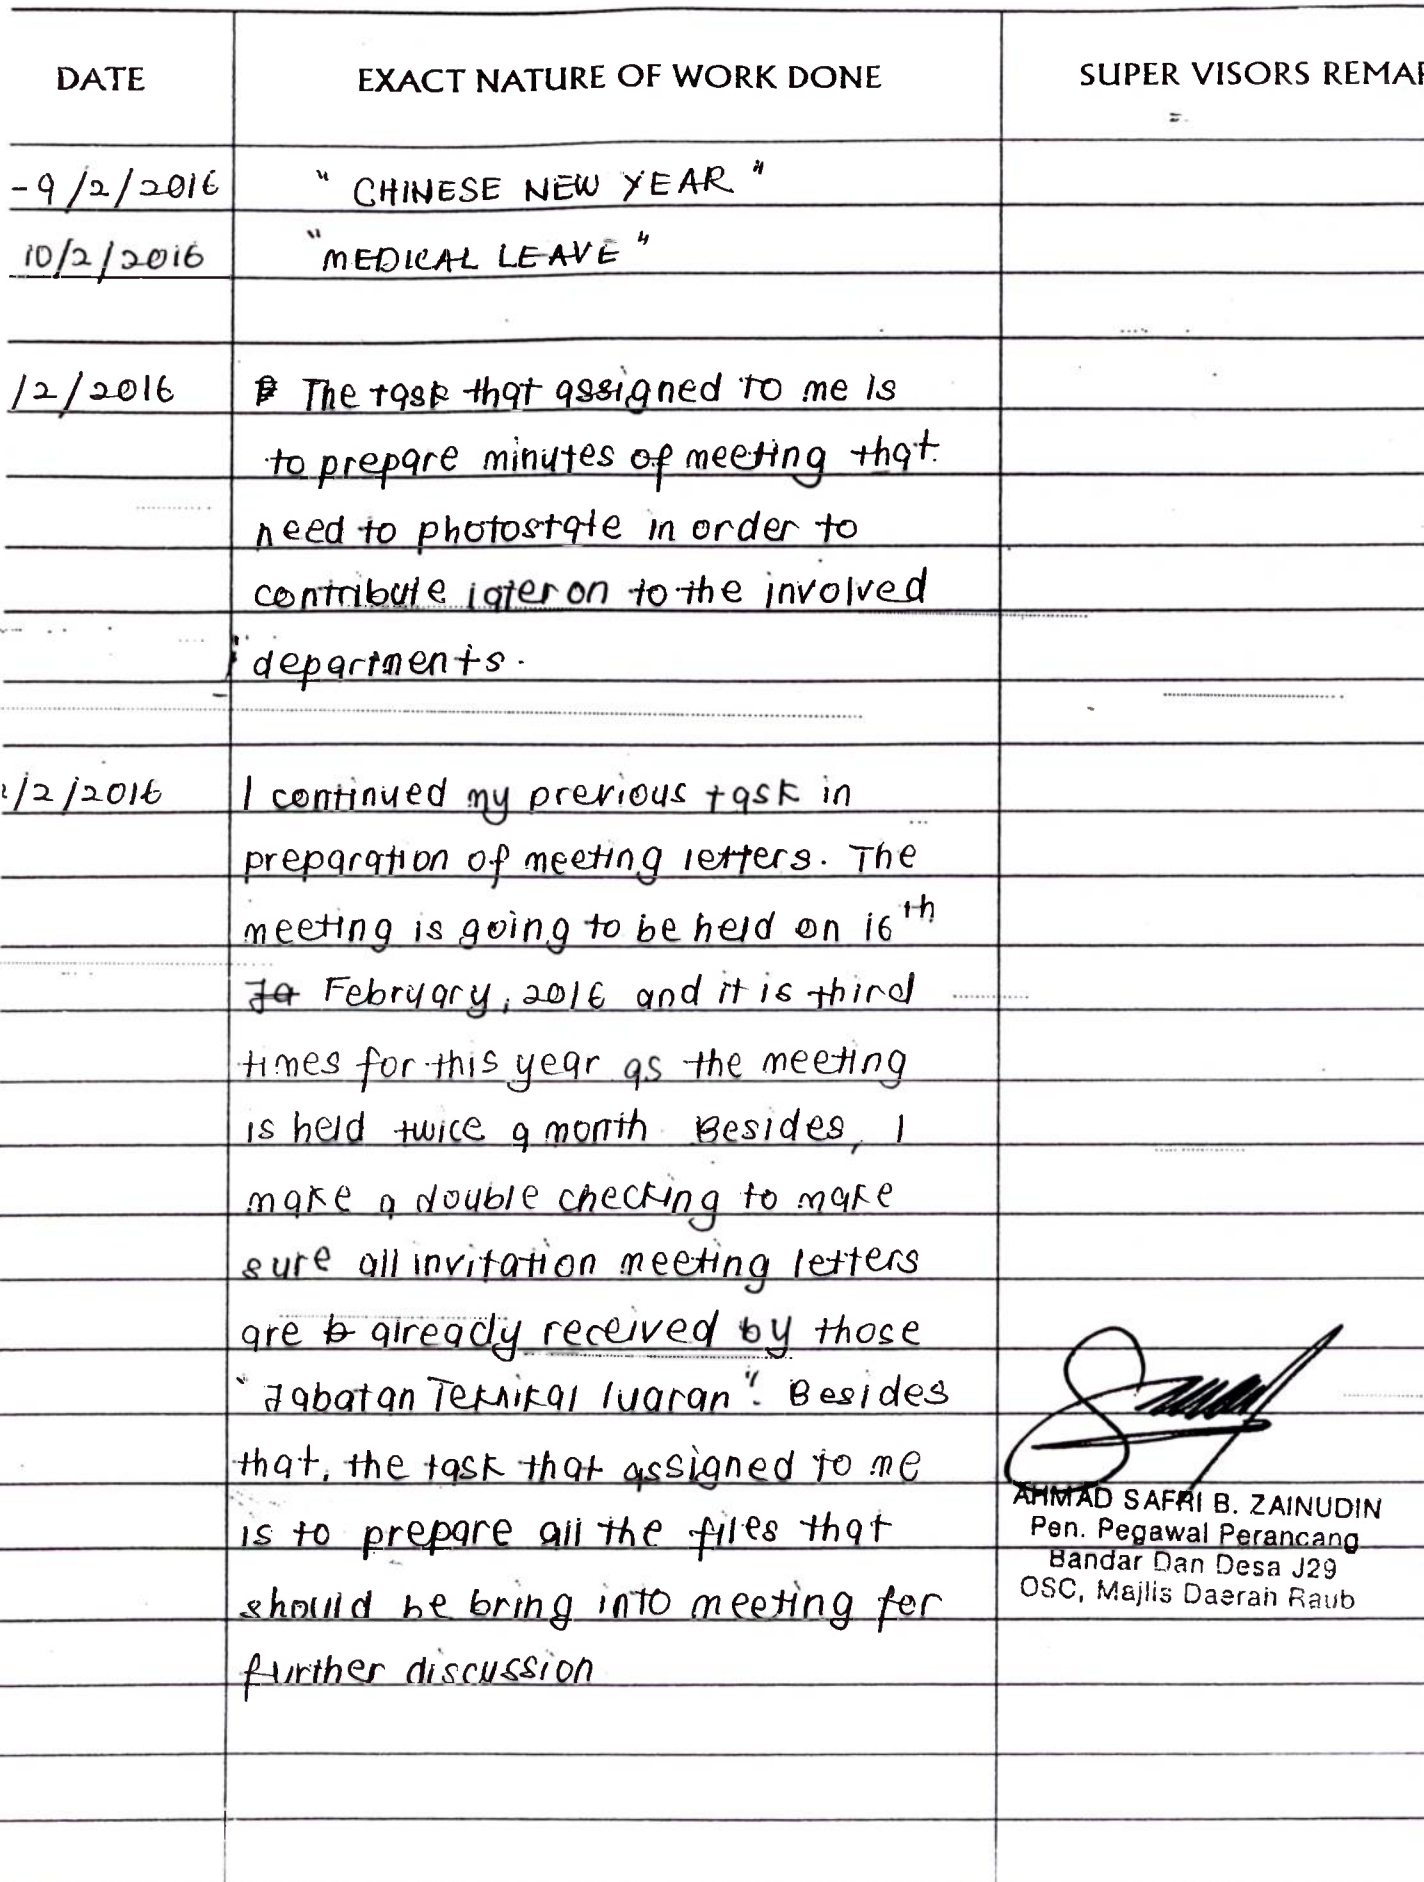 DATE EXACT NATURE OF WORK DONE SUPER VISORS REMAR
-9/2/2016 " CHINESE NEW YEAR "
10/2/2016 "MEDICAL LEAVE"
/2/2016 The task that assigned to me is
to prepare minutes of meeting that
need to photostate in order to
contribute later on to the involved
departments.
/2/2016 I continued my previous task in
preparation of meeting letters. The
meeting is going to be held on 16th
Ja February, 2016 and it is third
times for this year as the meeting
is held twice a month Besides, I
make a double checking to make
sure all invitation meeting letters
are b already received by those
"Jabatan Teknikal luaran". Besides
that, the task that assigned to me
is to prepare all the files that
should be bring into meeting for
further discussion
AHMAD SAFRI B. ZAINUDIN
Pen. Pegawai Perancang
Bandar Dan Desa J29
OSC, Majlis Daerah Raub